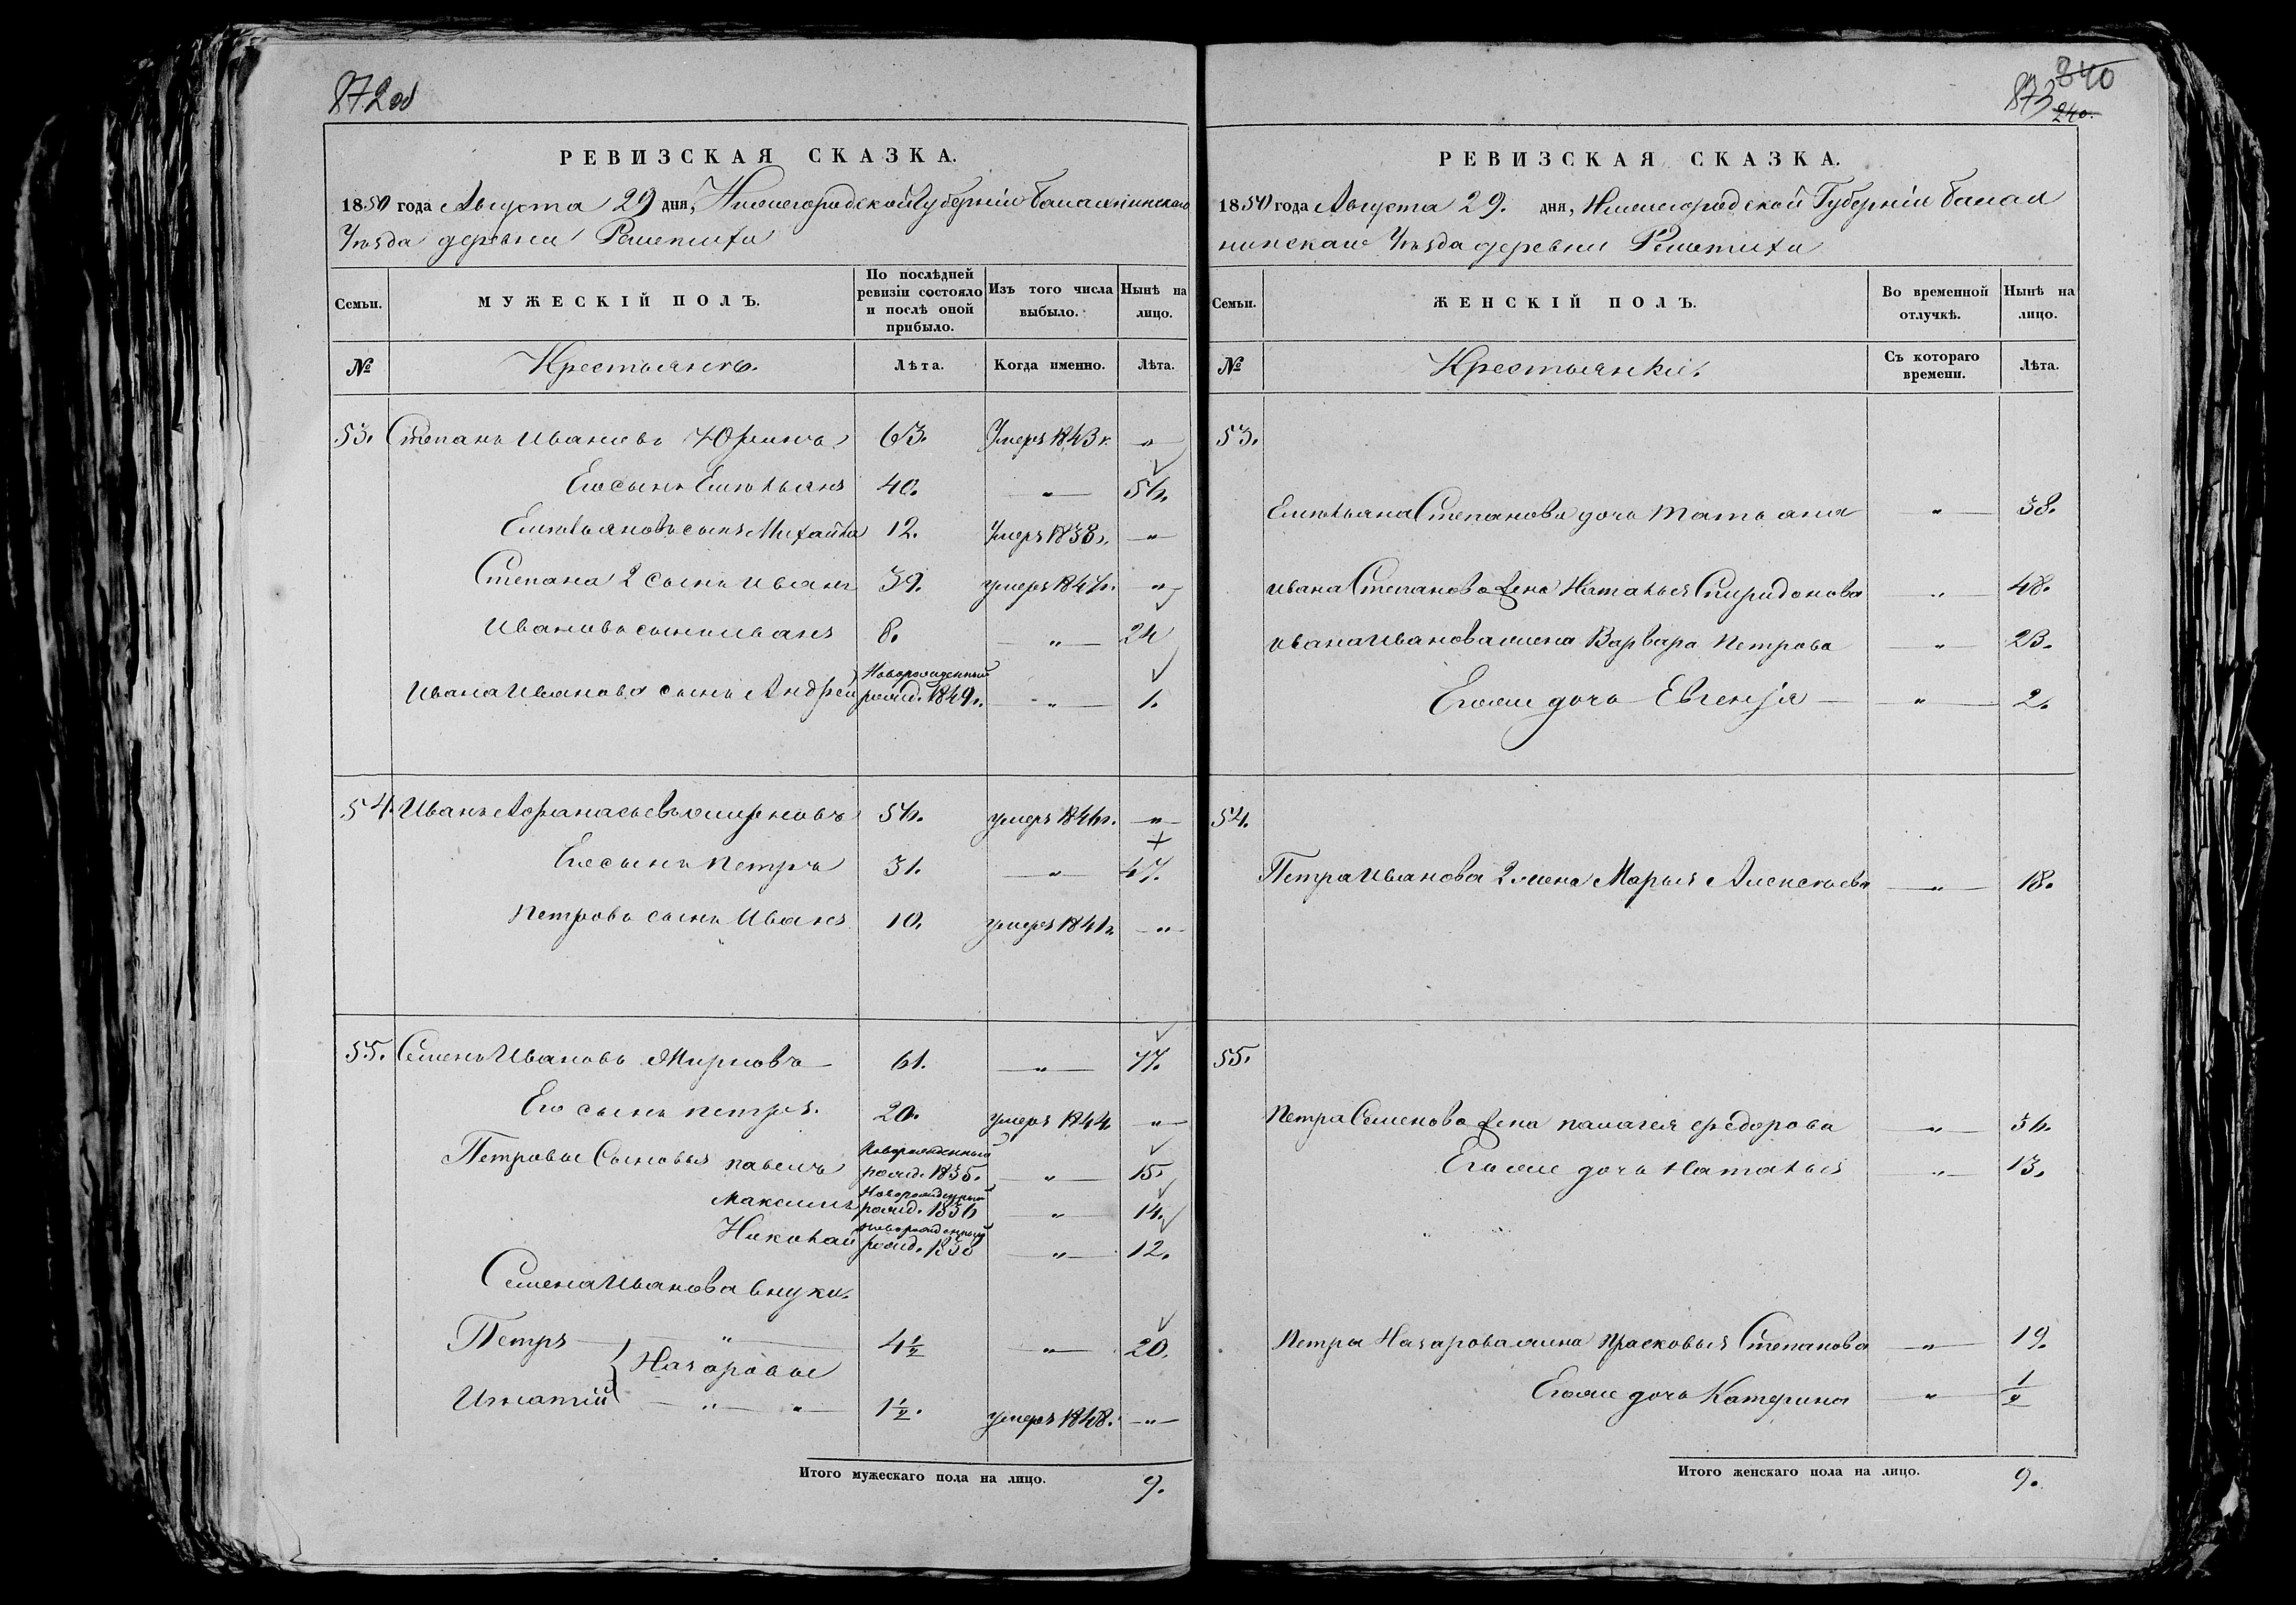 872 об
РЕВИЗСКАЯ СКАЗКА.
1850 года Августа 29 дня, Нижегородской Губерніи Балахнинскаго
Уѣзда деревни Решетихи
Семьи.
МУЖЕСКІЙ ПОЛЪ.
По послѣдней ревизіи состояло и послѣ оной прибыло.
Изъ того числа выбыло.
Нынѣ на лицо.
№ Крестьянъ. Лѣта. Когда именно. Лѣта.
53. Степанъ Ивановъ 63. Умеръ 1843 г. "
Его сынъ Емельянъ 40. " 56.
Емельяновъ сынъ Михайла 12. Умеръ 1838 г. "
Степана 2 сынъ Иванъ 39. умеръ 1847 г. "
Ивановъ сынъ Иванъ 8. " 24
Ивана Иванова сынъ Андрей Новорожденный рожд. 1849 г. " 1.
54. Иванъ Афанасьевъ Смирновъ 56. умеръ 1846 г. "
Его сынъ Петръ 31. " 47.
Петровъ сынъ Иванъ 10. умеръ 1841 г. "
55. Семенъ Ивановъ Жирновъ 61. " 77.
Его сынъ Петръ. 20. умеръ 1844 "
Петровы Сыновья Павелъ Новорожденный рожд. 1835. " 15.
Максимъ Новорожденный рожд. 1836 " 14.
Николай Новорожденный рожд. 1838 " 12.
Семена Иванова внуки.
Петръ " 4 1/2 " 20.
Назаровы
Игнатій " " 1 1/2. умеръ 1848. "
Итого мужескаго пола на лицо. 9.
340
873
240.
РЕВИЗСКАЯ СКАЗКА.
1850 года Августа 29. дня, Нижегородской Губерніи Балах
нинскаго Уѣзда деревни Решетихи
Семьи.
ЖЕНСКІЙ ПОЛЪ.
Во временной отлучкѣ.
Нынѣ на лицо.
№ Крестьянки. Съ котораго времени. Лѣта.
53.
Емельяна Степанова дочь Татьяна " 38.
Ивана Степанова жена Наталья Спиридонова " 48.
Ивана Иванова жена Варвара Петрова " 23.
Его же дочь Евгенія " 2.
54.
Петра Иванова 2 жена Марья Алексѣева " 18.
55.
Петра Семенова жена Палагея Федорова " 36.
Его же дочь Наталья " 13.
Петра Назарова жена Прасковья Степанова " 19.
Его же дочь Катерина " 1/2
Итого женскаго пола на лицо. 9.